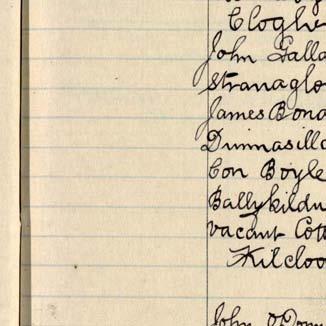 Cloghe
John Galla
Stranaglo
James Bona
Dunnasillo
Con Boyle
Ballykildu
Vacant Cott
Kilcloo
John O'Donn